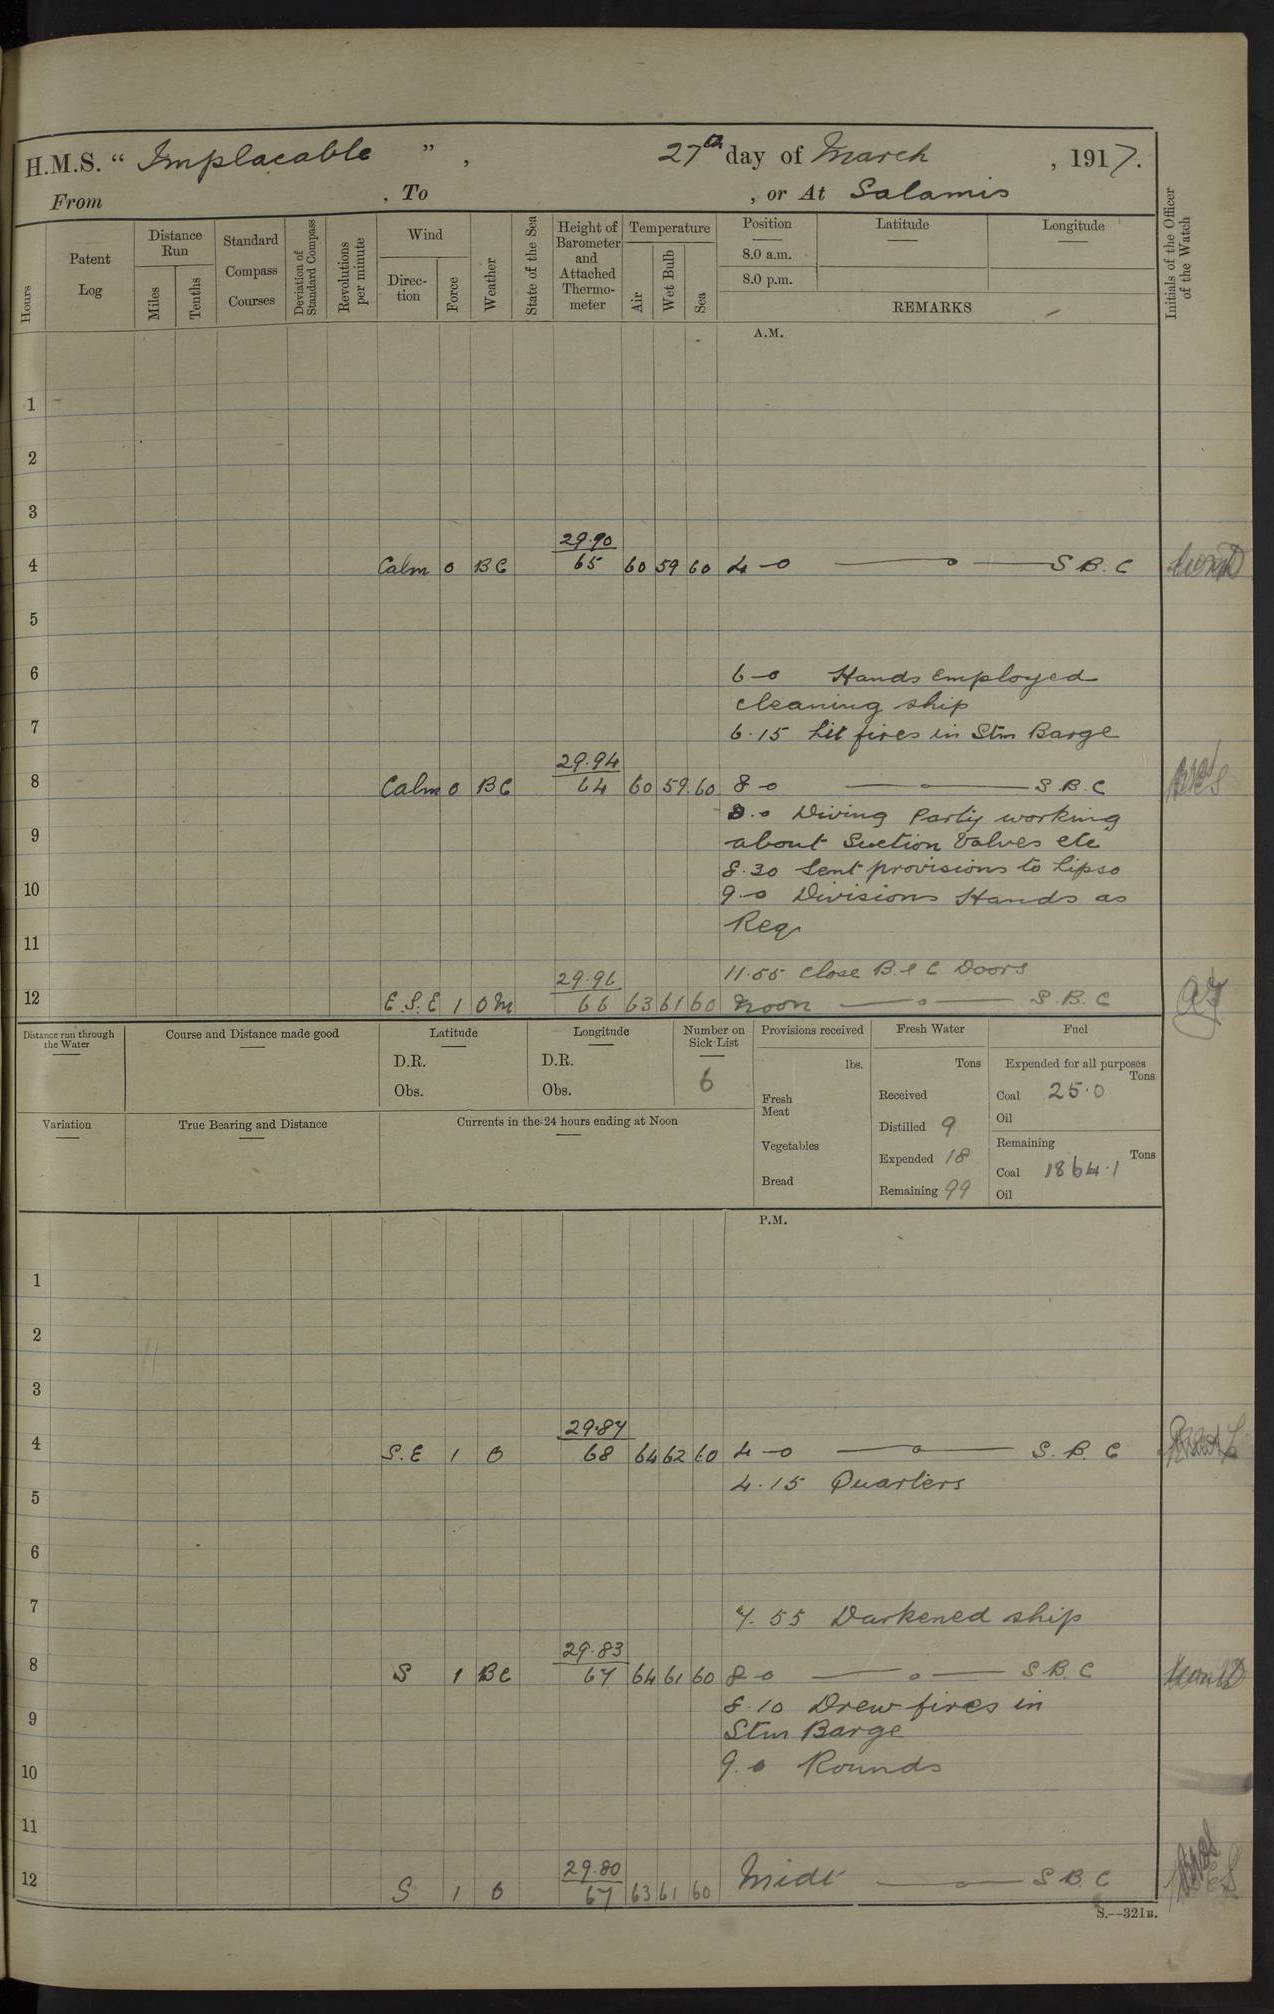 H.M.S. “ Implacable ” , 27th day of March , 1917.
From , To , or At Salamis
Hours
Patent Log
Distance Run
Miles
Tenths
Standard Compass Courses
Deviation of Standard Compass
Revolutions per minute
Wind
Direc-tion
Force
Weather
State of the Sea
Height of Barometer and Attached Thermo-meter
Temperature
Air
Wet Bulb
Sea
Position
8.0 a.m.
8.0 p.m.
Latitude
Longitude
REMARKS
Initials of the Officer of the Watch
A.M.
1
2
3
29.90
4 Calm 0 BC 65 60 59 60 4-0 S.B.C
5
6 6-0 Hands employed
cleaning ship
7 6.15 Lit fires in Stm Barge
29.94
8 Calm 0 BC 64 60 59 60 8-0 S.B.C
8.0 Diving Party working
9 about Suction Valves etc
8.30 Sent provisions to Lipso
10 9-0 Divisions Hands as
Req
11
29.96 11.55 Close B & C Doors
12 E.S.E 1 OM 66 63 61 60 Noon S.B.C
Distance run through the Water
Course and Distance made good
Latitude
D.R.
Obs.
Longitude
D.R.
Obs.
Number on Sick List
6
Provisions received
lbs.
Fresh Meat
Vegetables
Bread
Fresh Water
Tons
Received
Distilled 9
Expended 18
Remaining 99
Fuel
Expended for all purposes
Tons
Coal 25.0
Oil
Remaining
Tons
Coal 1864.1
Oil
Variation
True Bearing and Distance
Currents in the 24 hours ending at Noon
P.M.
1
2
3
29.87
4 S.E 1 O 68 64 62 60 4-0 S.B.C
4.15 Quarters
5
6
7 7.55 Darkened ship
29.83
8 S 1 BC 67 64 61 60 8-0 S.B.C
8.10 Drew fires in
9 Stm Barge
10 9.0 Rounds
11
29.80
12 S 1 O 67 63 61 60 Midt S.B.C
S.--321B.